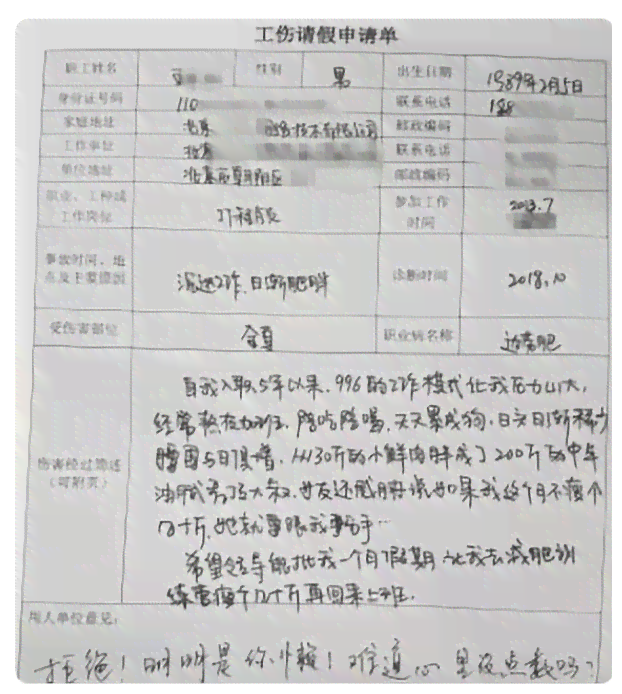 工伤请假申请单
职工姓名 性别 男 出生日期 1989年2月5日
身份证号码 110 联系电话 188
家庭地址 北京 网络技术有限公司 邮政编码
工作单位 北京 联系电话
单位地址 北京市朝阳区 邮政编码
职业、工种或
工作岗位 IT程序员 参加工作
时间 2013.7
事故时间、地
点及主要原因 沉迷工作,日渐肥胖 诊断时间 2018.10
受伤害部位 全身 职业病名称 过劳肥
伤害经过简述
(可附页)
自我入职5年以来,996的工作模式让我压力山大,
经常熬夜加班,陪吃陪喝,天天累成狗,白头日渐稀少
腰围与日俱增,从130斤的小鲜肉胖成了200斤的中年
油腻秃顶大叔,女友还威胁说如果我这个月不瘦个
几十斤,她就要跟我分手…
希望领导能批我一个月假期让我去减肥训
练营瘦个几十斤再回来上班.
用人单位意见:
拒绝!明明是你小懒!难道心里没点数吗?